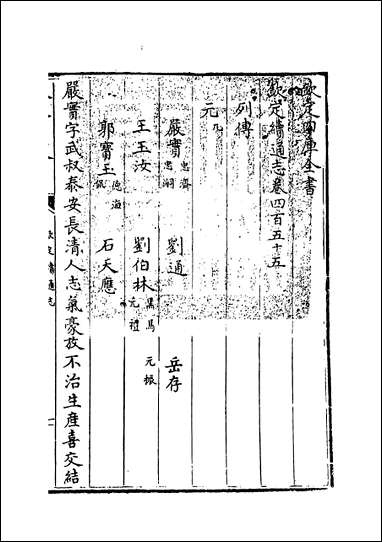 欽定四庫全書
欽定續通志卷四百五十五
列傳
元 九
嚴實 忠濟 忠嗣 劉通 岳存
王玉汝 劉伯林 黑馬 元振 元禮
郭寶玉 德海 侃 石天應
嚴實字武叔泰安長清人志氣豪放不治生產喜交結
欽定續通志